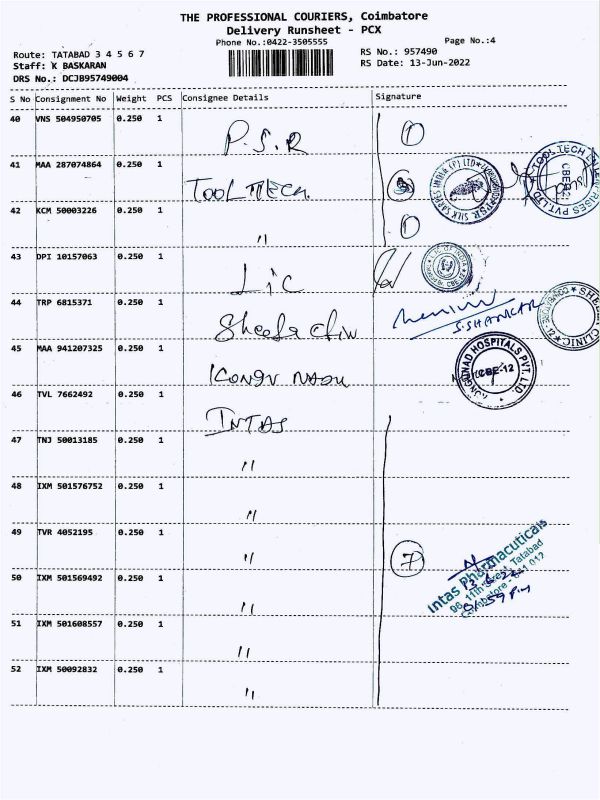 THE PROFESSIONAL COURIERS, Coimbatore
Delivery Runsheet - PCX
Phone No.:0422-3505555
Page No.:4
Route: TATABAD 3 4 5 6 7
RS No.: 957490
Staff: K BASKARAN
RS Date: 13-Jun-2022
DRS No.: DCJB95749004
S No Consignment No Weight PCS Consignee Details Signature
40 VNS 504950705 0.250 1 P.S.R 1
41 MAA 287074864 0.250 1 TOOLTTECH
42 KCM 50003226 0.250 1 " 1
43 DPI 10157063 0.250 1 Lic
44 TRP 6815371 0.250 1 S.SHANKAR
45 MAA 941207325 0.250 1 KONGU NADU KONGUNAD HOSPITALS PVT. LTD. CBE-12
46 TVL 7662492 0.250 1 INTAS
47 TNJ 50013185 0.250 1 "
48 IXM 501576752 0.250 1 "
49 TVR 4052195 0.250 1 " 7
Intas Pharmaceuticals
96, 11th Street, Tatabad
Coimbatore - 641 012
50 IXM 501569492 0.250 1 "
51 IXM 501608557 0.250 1 "
52 IXM 50092832 0.250 1 "